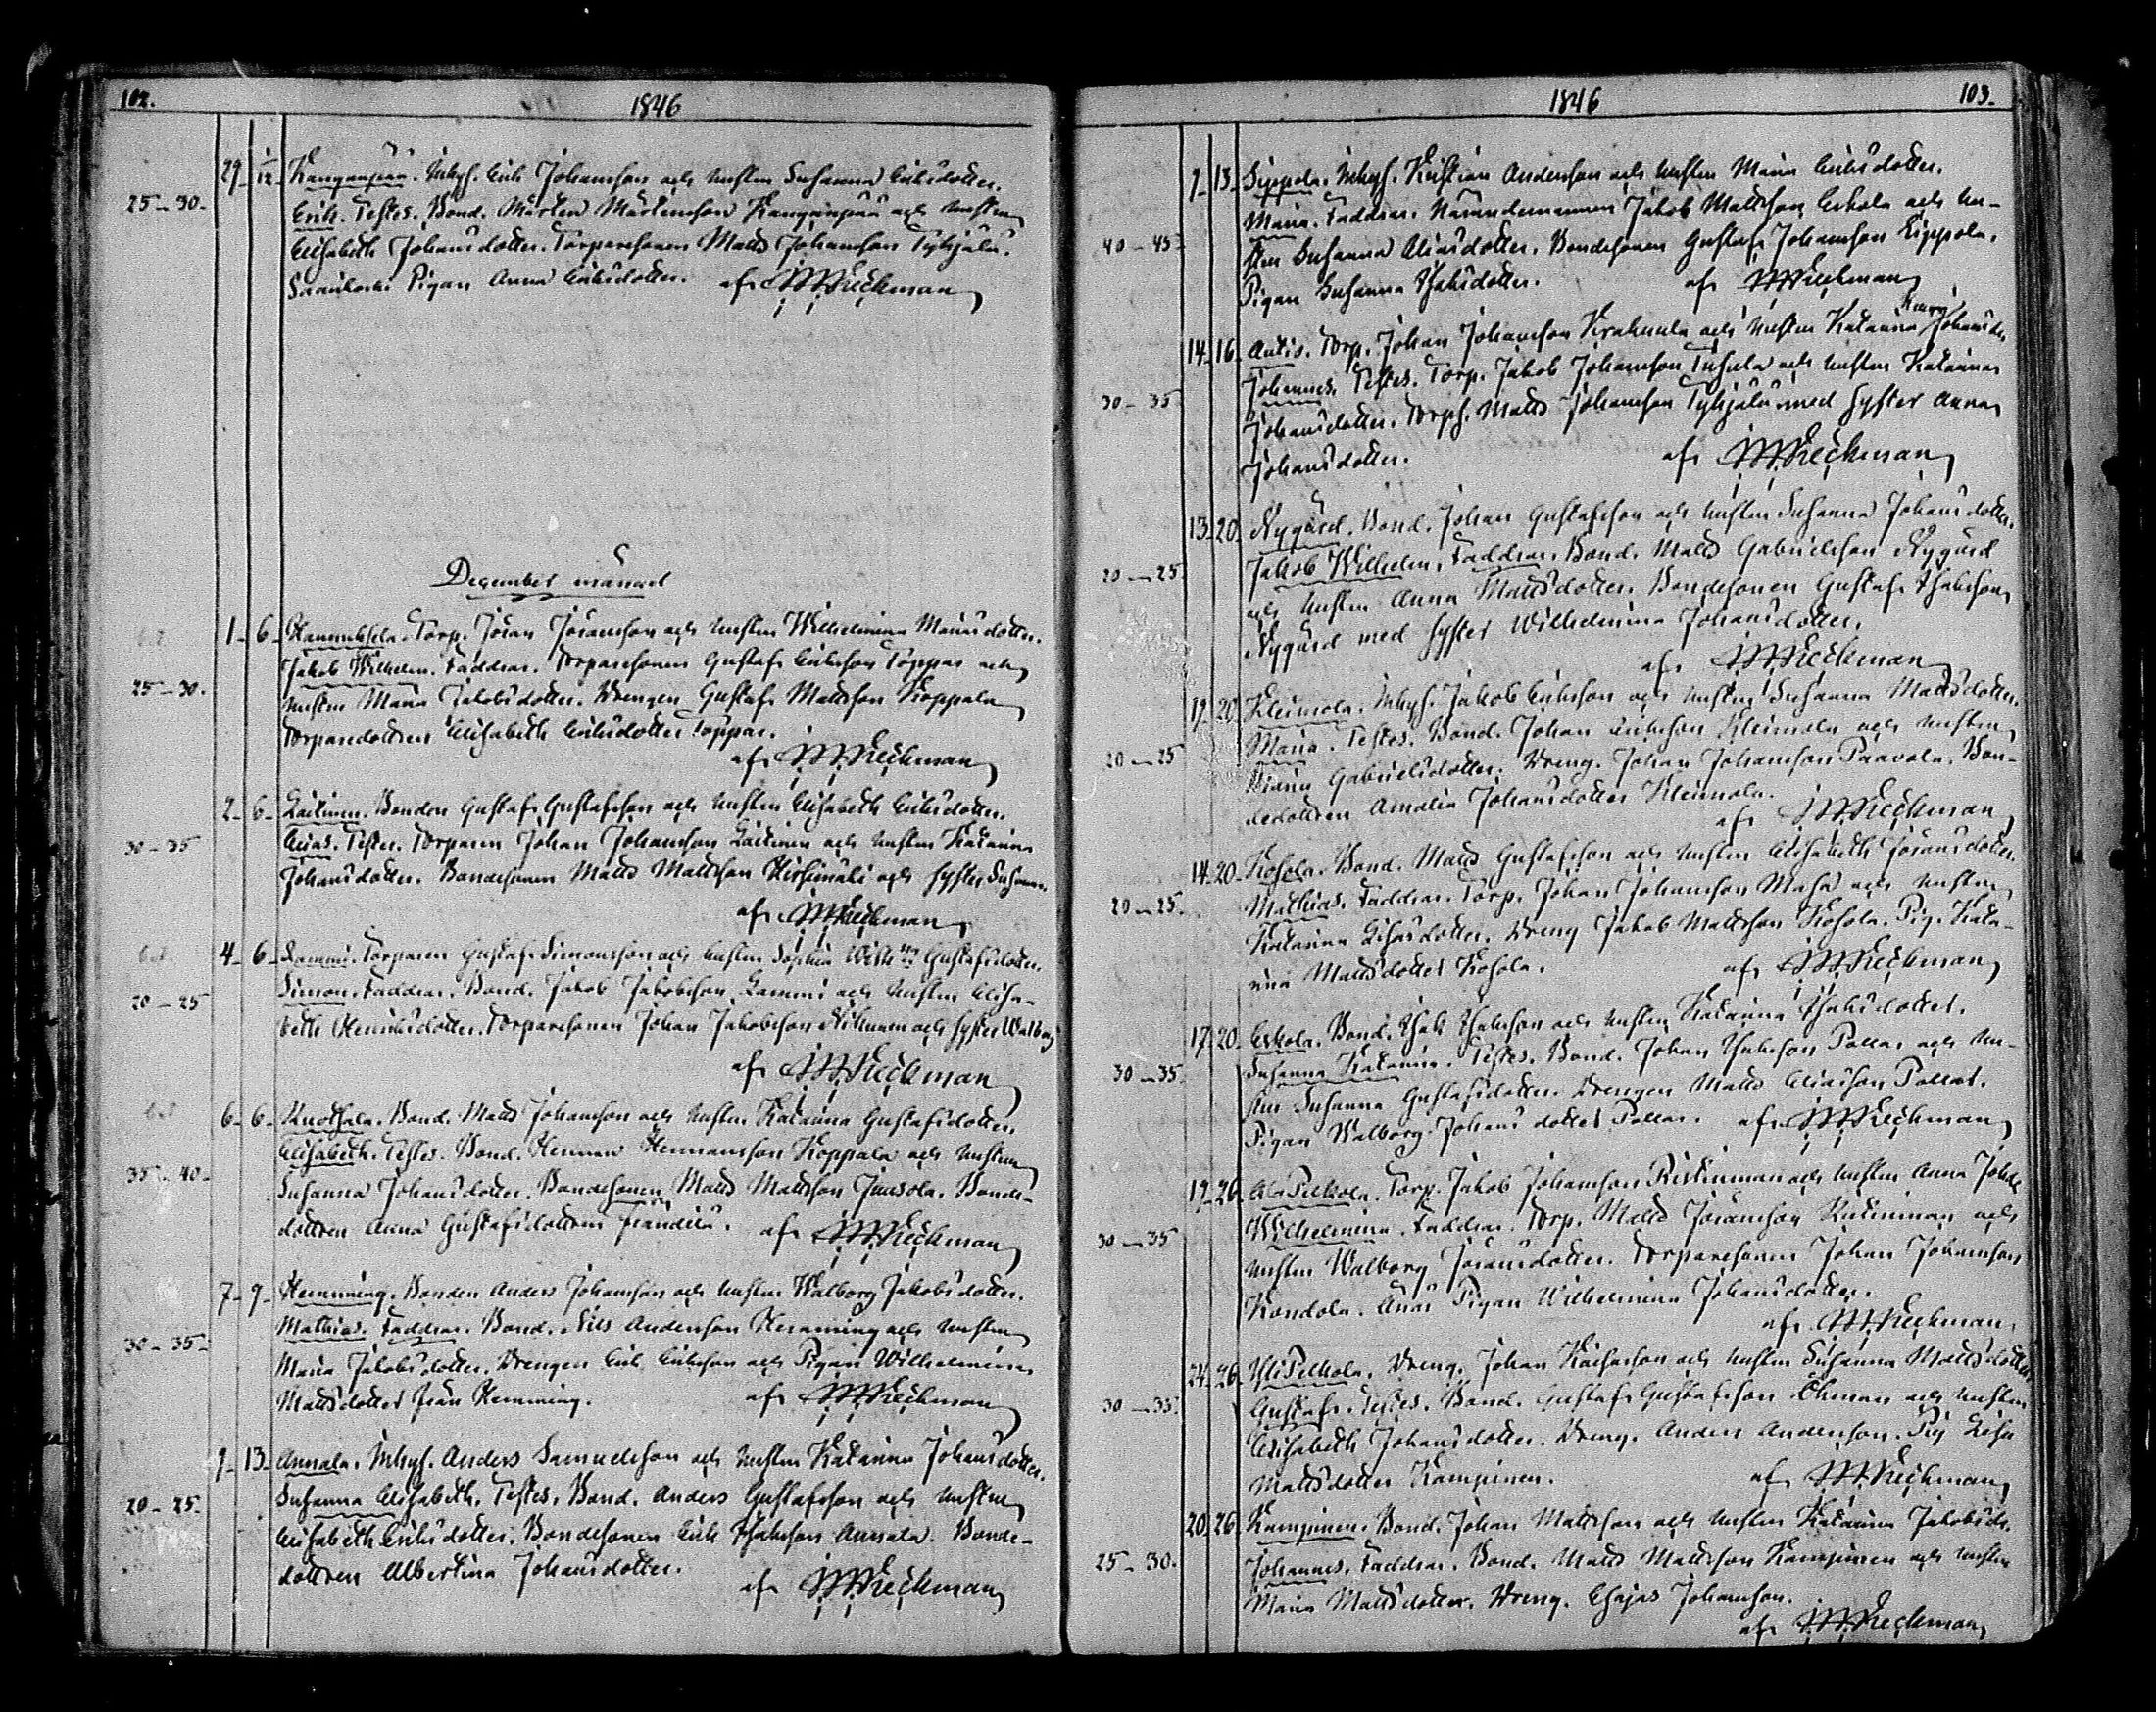 102.
1846
29 1/12 Kanganpää. Inhys. Erik Johansson och hustru Susanna Eriksdotter.
25-30. Erik. Testes. Bond. Mårten Mårtensson Kanganpää och hustru
Elisabeth Johansdotter. Torparesonen Matts Johansson Tyhjälä.
Pigan Anna Eriksdotter. af
December månad
1-6- Torp. Jöran Jöransson och hustru Wilhelmina
25-30. Jakob Wilhelm. Faddrar. Torparesonen Gustaf Eriksson Toppar och
hustru Maria Jakobsdotter. Drengen Gustaf Mattsson Koppala
Torparedottren Elisabeth Eriksdotter Toppar.
af
2-6- Laitinen. Bonden Gustaf Gustafsson och hustru Elisabeth Eriksdotter.
30-35 Elias. Testes. Torparen Johan Johansson Laitinen och hustru Katarina
Johansdotter. Bondesonen Matts Mattsson och syster Susanna.
af
4-6- Lammi. Torparen Gustaf Simonsson och hustru Sophia Wilh:na Gustafsdotter.
20-25 Simon. Faddrar. Bond. Jakob Jakobsson Lammi och hustru Elisa-
beth Henriksdotter. Torparesonen Johan Jakobsson och syster Walborg
af
6-6- Knuthala. Bond. Matts Johansson och hustru Katarina Gustafsdotter.
35-40- Elisabeth. Testes. Bond. Herman Hermansson Koppala och hustru
Susanna Johansdotter. Bondesonen Matts Mattsson Juusola. Bonde-
dottren Anna Gustafsdotter af
7-9- Hemming. Bonden Anders Johansson och hustru Walborg Jakobsdotter.
30-35- Mathias. Faddrar. Bond. Nils Andersson Hemming och hustru
Maria Jakobsdotter. Drengen Erik Eriksson och Pigan Wilhelmina
Mattsdotter från Hemming. af
9-13- Annala. Inhys. Anders Samuelsson och hustru Katarina Johansdotter.
20-25. Susanna Elisabeth. Testes. Bond. Anders Gustafsson och hustru
Elisabeth Eriksdotter. Bondesonen Erik Isaksson Annala. Bonde-
dottren Albertina Johansdotter.
af
1846
103.
9-13- Sippola. Inhys. Kristian Andersson och hustru Maria Eriksdotter.
Maria. Faddrar. Nämndemannen Jakob Mattsson Eskola och hu-
40-45 stru Susanna Eliasdotter. Bondesonen Gustaf Johansson Sippola.
Pigan Susanna Isaksdotter. af
14-16- Antis. Torp. Johan Johansson Kraknala och hustru Katarina Johansdr
30-35 Johannes. Testes. Torp. Jakob Johansson och hustru Katarina
Johansdotter. Torps. Matts Johansson Tyhjälä med syster Anna
Johansdotter. af
13-20- Nygård. Bond. Johan Gustafsson och hustru Susanna Johansdotter.
20-25 Jakob Wilhelm. Faddrar. Bond. Matts Gabrielsson Nygård
och hustru Anna Mattsdotter. Bondesonen Gustaf Isaksson
Nygård med syster Wilhelmina Johansdotter.
af
19-20 Kleimola. Inhys. Jakob Eriksson och hustru Susanna Mattsdotter.
20-25 Maria. Testes. Bond. Johan Eriksson Kleimola och hustru
Maria Gabrielsdotter. Dreng. Johan Johansson Paavola. Bon-
dedottren Amalia Johansdotter Kleimola.
af
14-20- Kohola. Bond. Matts Gustafsson och hustru Elisabeth Jöransdotter.
20-25. Mathias. Faddrar. Torp. Johan Johansson och hustru
Katarina Dreng Jakob Mattsson Kohola. Pig. Kata-
rina Mattsdotter Kohola. af
17-20- Eskola. Bond. Isak Isaksson och hustru Katarina Isaksdotter.
30-35. Susanna Katarina. Testes. Bond. Johan Isaksson Pollar och hu-
stru Susanna Gustafsdotter. Drengen Matts Eliasson Pollar.
Pigan Walborg Johansdotter Pollar. af
19-26- Ala Pelkola. Torp. Jakob Johansson Ristiniman och hustru Anna
30-35 Wilhelmina. Faddrar. Torp. Matts Jöransson Ristiniman och
hustru Walborg Jöransdotter. Torparesonen Johan Johansson
Kondola. Pigan Wilhelmina Johansdotter.
af
24-26- Yli Pelkola. Dreng. Johan och hustru Susanna Mattsdotter
30-35. Gustaf. Testes. Bond. Gustaf Gustafsson Öhman och hustru
Elisabeth Johansdotter. Dreng. Anders Andersson. Pig Lisa
Mattsdotter Kampinen. af
20-26- Kampinen. Bond. Johan Mattsson och hustru Katarina Jakobsdr.
25-30. Johannes. Faddrar. Bond. Matts Mattsson Kampinen och hustru
Maria Mattsdotter. Dreng. Esajas Johansson.
af